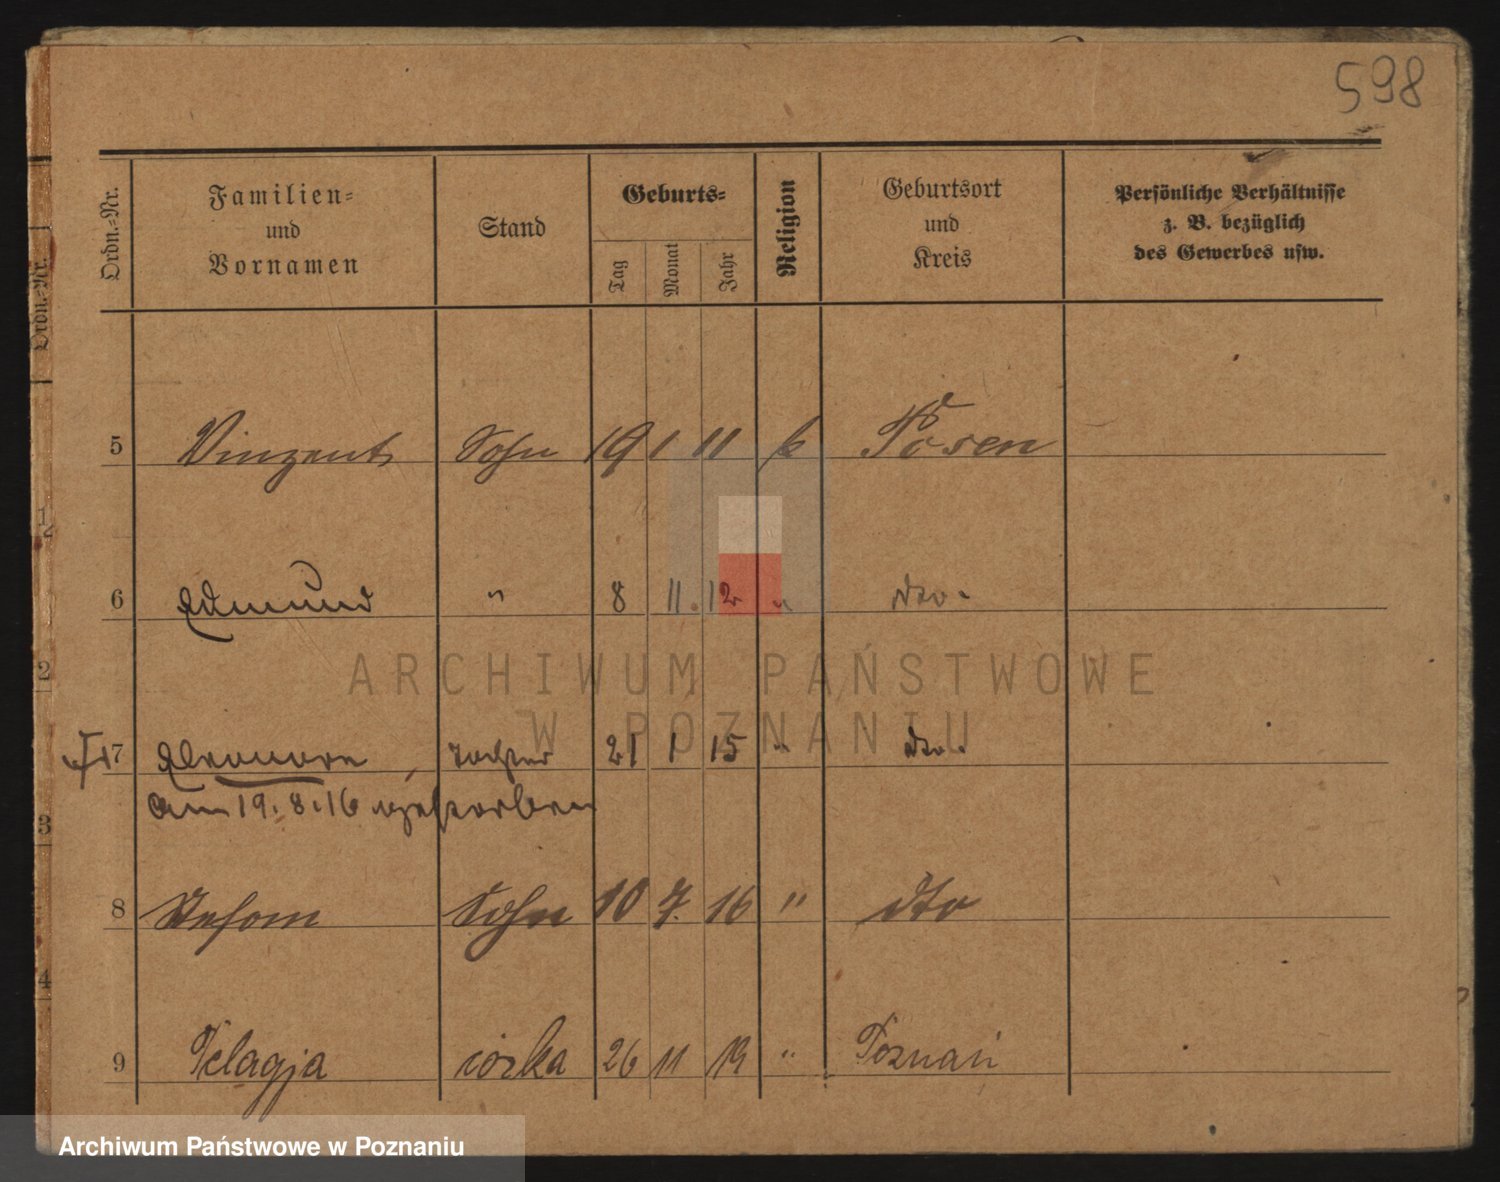 598
Ordn.=Nr.
Familien=
und
Vornamen
Stand
Geburts=
Tag
Monat
Jahr
Religion
Geburtsort
und
Kreis
Persönliche Verhältnisse
z. B. bezüglich
des Gewerbes usw.
Ordn.=Nr.
5 Vinzent Sohn 19 1 11 k Posen
1
6 Edmund " 8 11. 12 " dto.
2
ARCHIWUM PAŃSTWOWE
W POZNANIU
7 Eleonore, Tochter 21 1 15 " dto.
am 19.8.16 gestorben
3
8 Stefan Sohn 10 7. 16 " dto
4
9 Pelagja córka 26 11 19 " Poznań
Archiwum Państwowe w Poznaniu